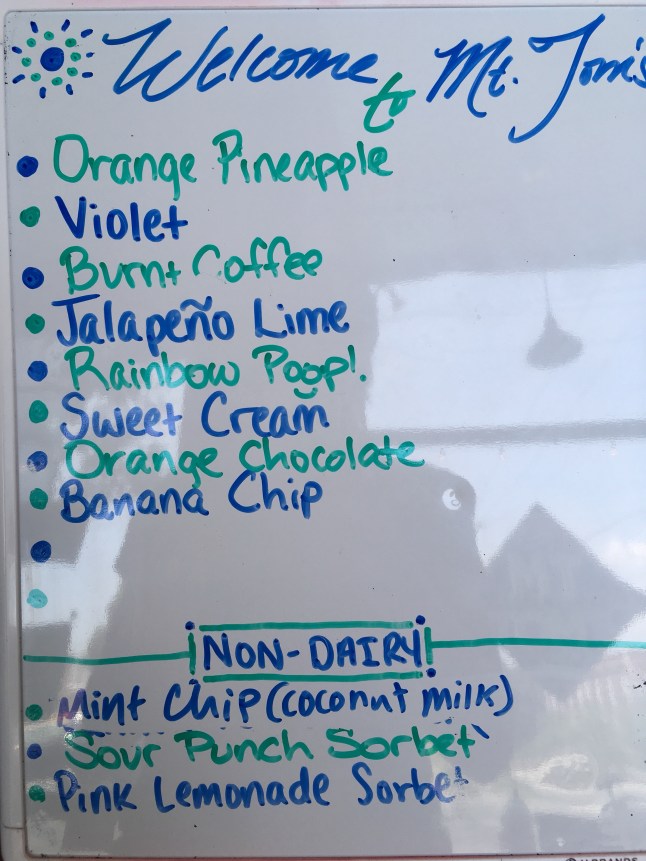 Welcome to Mt. Tom's
Orange Pineapple
Violet
Burnt Coffee
Jalapeño Lime
Rainbow Poop!
Sweet Cream
Orange Chocolate
Banana Chip
NON-DAIRY
Mint Chip (coconut milk)
Sour Punch Sorbet
Pink Lemonade Sorbet